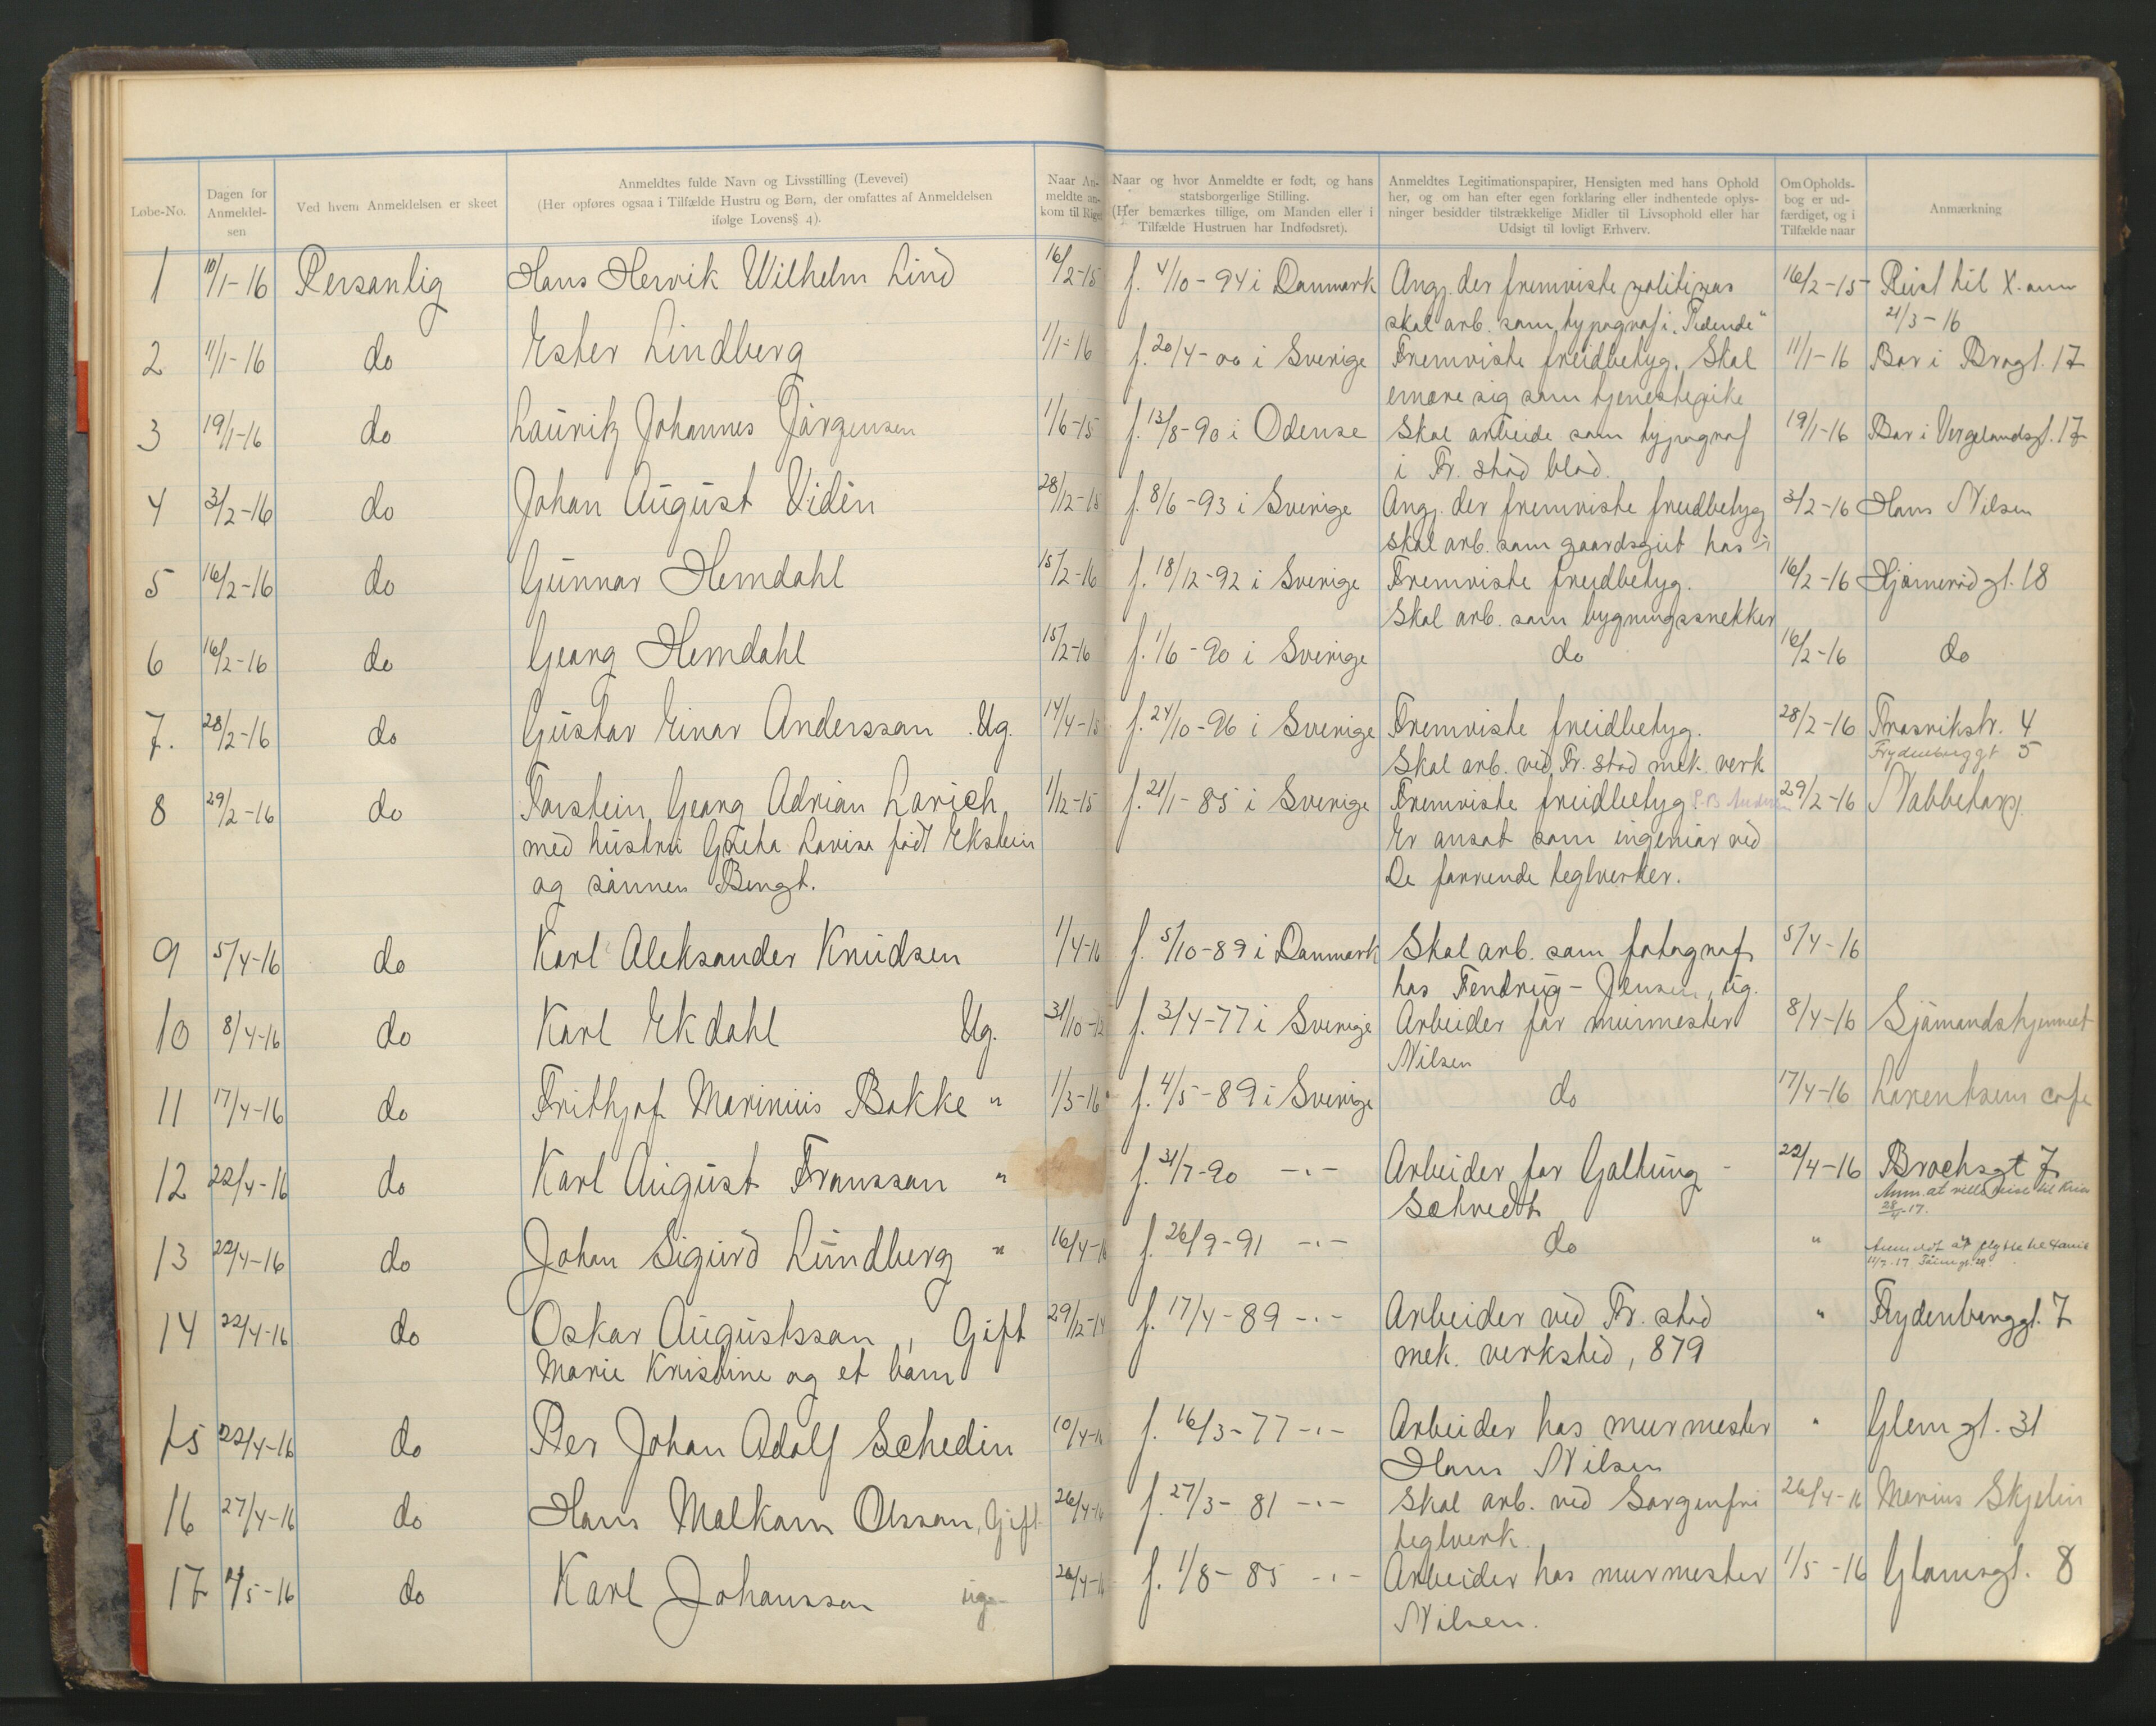 Løbe-No.
Dagen for Anmeldel-sen
Ved hvem Anmeldelsen er skeet
Anmeldtes fulde Navn og Livsstilling (Levevei)
(Her opføres ogsaa i Tilfælde Hustru og Børn, der omfattes af Anmeldelsen
ifølge Lovens§ 4).
Naar An-meldte an-kom til Riget
Naar og hvor Anmeldte er født, og hans
statsborgerlige Stilling.
(Her bemærkes tillige, om Manden eller i
Tilfælde Hustruen har Indfødsret).
Anmeldtes Legitimationspapirer, Hensigten med hans Ophold
her, og om han efter egen forklaring eller indhentede oplys-
ninger besidder tilstrækkelige Midler til Livsophold eller har
Udsigt til lovligt Erhverv.
Om Opholds-
bog er ud-
færdiget, og i
Tilfælde naar
Anmærkning
1 10/1-16 Personlig Hans Henrik Wilhelm Lind 16/2-15 f. 4/10-94 i Danmark Ang. der fremviste politipas 16/2-15 Reist til
skal arb. som typograf i "Tidende" 21/3-16
2 11/1-16 do Ester Lindberg 1/1-16 f. 20/4-00 i Sverige Fremviste freidbetyg. Skal 11/1-16 Bor i Brogt. 17
ernære sig som tjenestepike
3 19/1-16 do Lauritz Johannes Jørgensen 1/6-15 f. 13/8-90 i Odense Skal arbeide som typograf 19/1-16 Bor i Vergelandsgt. 17
i Fr. stad blad.
4 3/2-16 do Johan August Vidèn 28/12-15 f. 8/6-93 i Sverige Ang. der fremviste freidbetyg 3/2-16 Hans Nilsen
skal arb. som gaardsgut hos
5 16/2-16 do Gunnar Hemdahl 15/2-16 f. 18/12-92 i Sverige Fremviste freidbetyg. 16/2-16 Hjørnerød gt. 18
Skal arb. som bygningssnekker
6 16/2-16 do Georg Hemdahl 15/2-16 f. 1/6-90 i Sverige do 16/2-16 do
7. 28/2-16 do Gustav Einar Andersson. Ug. 14/4-15 f. 24/10-96 i Sverige Fremviste freidbetyg. 28/2-16 Trosvikstr. 4
Skal arb. ved Fr. stad mek. verk Frydenberggt 5
8 29/2-16 do Torstein Georg Adrian Larich 1/12-15 f. 21/1-85 i Sverige Fremviste freidbetyg 29/2-16 Nabbetorp.
med hustru Greta Lovisa født Ekstein Er ansat som ingeniør ved
og sønnen Bengt. De forrende teglverker.
9 5/4-16 do Karl Aleksander Knudsen 1/4-16 f. 5/10-89 i Danmark Skal arb. som fotograf 5/4-16
hos Fendrug-Jensen, ug.
10 8/4-16 do Karl Ekdahl Ug. 31/10-12 f. 3/4-77 i Sverige Arbeider for murmester 8/4-16 Sjømandshjemmet
Nilsen
11 17/4-16 do Frithjof Marinius Bakke " 1/3-16 f. 4/5-89 i Sverige do 17/4-16 Lorentsens cafe
12 22/4-16 do Karl August Franssan " f. 31/7-90 -"- Arbeider for Galtung- 22/4-16 Brochsgt 7
Schvedt Anm. at ville reise til Kria
28/4-17.
13 22/4-16 do Johan Sigurd Lundberg " 16/4-16 f. 26/9-91 -"- do " Anmeldt at flytte til
11/7-17
14 22/4-16 do Oskar Augustsson, Gift 29/12-14 f. 17/4-89 -"- Arbeider ved Fr. stad " Frydenberggt. 7
Marie Kristine og et barn mek. verksted, 879
15 22/4-16 do Per Johan Adolf Schedin 10/4-16 f. 16/3-77 -"- Arbeider hos murmester " Glemgt. 31
Hans Nilsen
16 27/4-16 do Hans Malkom Olsson, Gift 26/4-16 f. 27/3-81 -"- Skal arb. ved Sorgenfri 26/4-16 Marius Skjelin
teglverk.
17 1/5-16 do Karl Johansson ug. 26/4-16 f. 1/8-85 -"- Arbeider hos murmester 1/5-16 Glomsgt. 8
Nilsen.